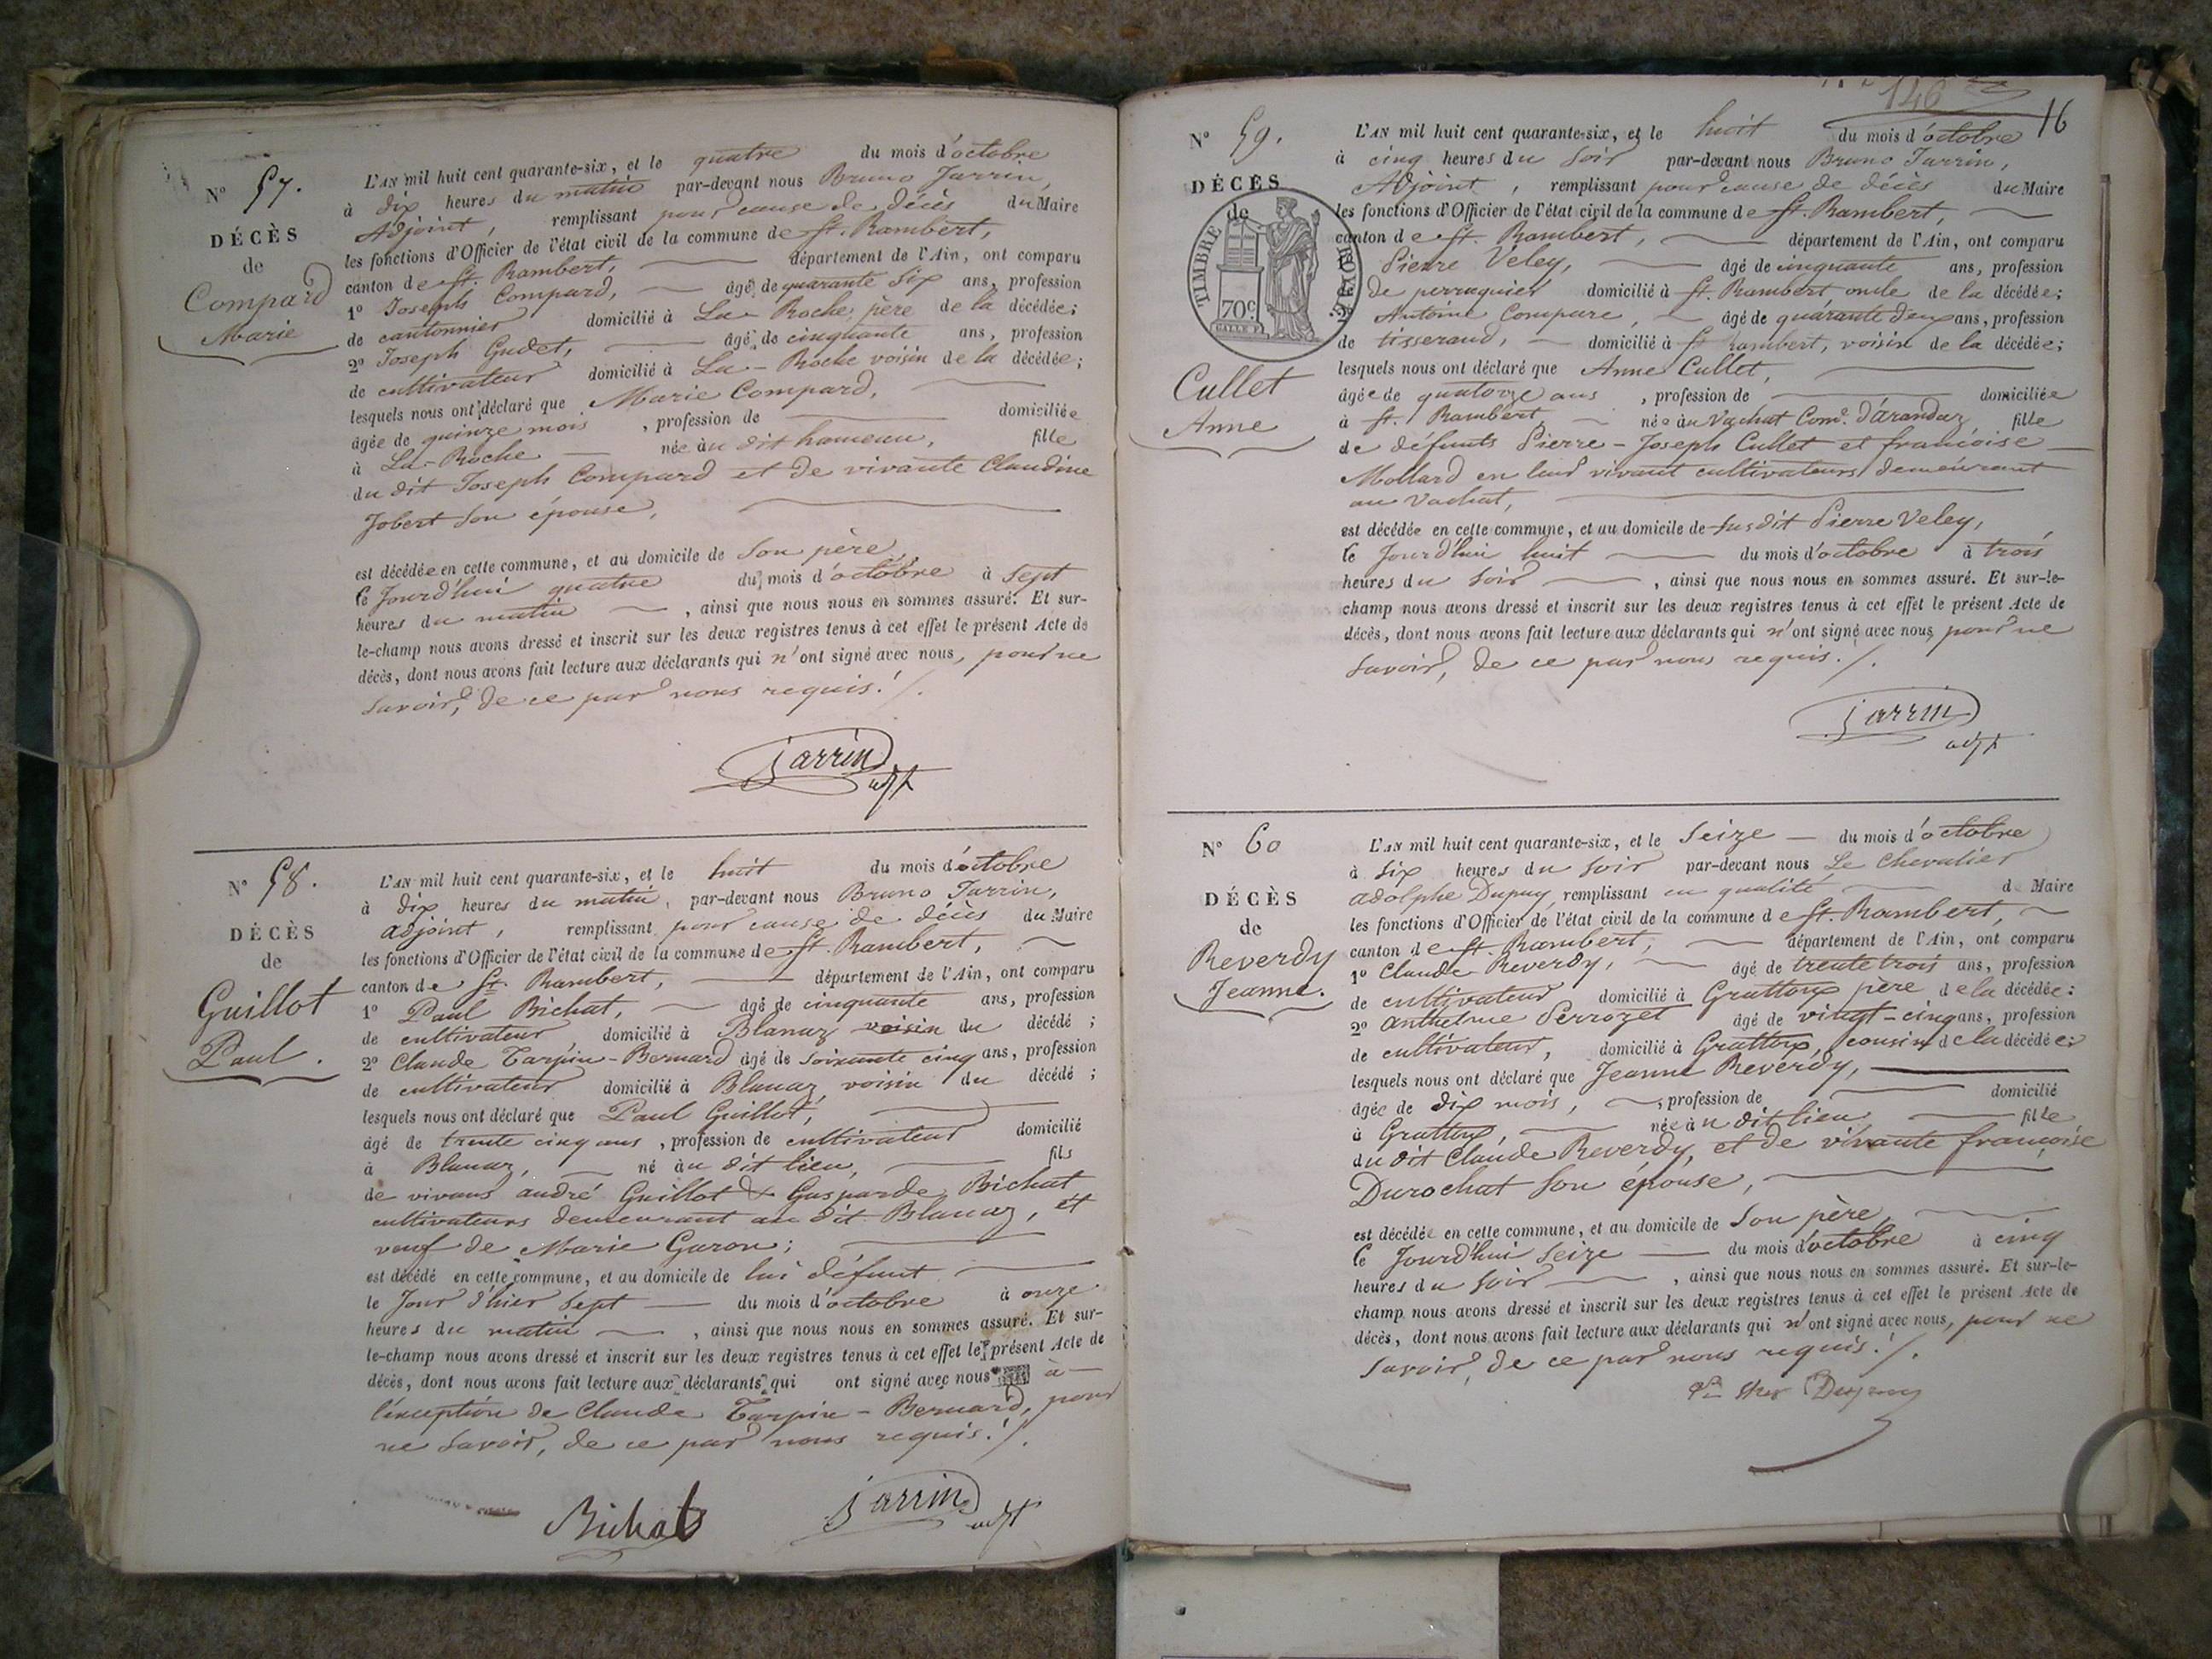 N° 57.
DÉCÈS
de
Compard
Marie
L'AN mil huit cent quarante-six, et le quatre du mois d'octobre
à dix heures du matin par-devant nous Bruno Jarrin,
Adjoint, remplissant pour cause de décès du Maire
les fonctions d'Officier de l'état civil de la commune de St. Rambert,
canton de St. Rambert, département de l'Ain, ont comparu
1° Joseph Compard, âgé de quarante six ans, profession
de cantonnier domicilié à La-Roche, père de la décédée;
2° Joseph Gudet, âgé de cinquante ans, profession
de cultivateur domicilié à La-Roche voisin de la décédée;
lesquels nous ont déclaré que Marie Compard,
âgée de quinze mois, profession de domiciliée
à La-Roche née au dit hameau, fille
du dit Joseph Compard et de vivante Claudine
Jobert son épouse,
est décédée en cette commune, et au domicile de son père,
le Jourd'hui quatre du mois d'octobre à sept
heures du matin, ainsi que nous nous en sommes assuré. Et sur-
le-champ nous avons dressé et inscrit sur les deux registres tenus à cet effet le présent Acte de
décès, dont nous avons fait lecture aux déclarants qui n'ont signé avec nous, pour ne
savoir, de ce par nous requis./.
Jarrin
adjt
N° 58.
DÉCÈS
de
Guillot
Paul.
L'AN mil huit cent quarante-six, et le huit du mois d'octobre
à dix heures du matin, par-devant nous Bruno Jarrin,
adjoint, remplissant pour cause de décès du Maire
les fonctions d'Officier de l'état civil de la commune de St. Rambert,
canton de St. Rambert, département de l'Ain, ont comparu
1° Paul Bichat, âgé de cinquante ans, profession
de cultivateur domicilié à Blanaz voisin du décédé;
2° Claude Tarpin-Bernard âgé de soixante cinq ans, profession
de cultivateur domicilié à Blanaz, voisin du décédé;
lesquels nous ont déclaré que Paul Guillot,
âgé de trente cinq ans, profession de cultivateur domicilié
à Blanaz, né au dit lieu, fils
de vivans andré Guillot & Gasparde Bichat
cultivateurs demeurant au dit Blanaz, et
veuf de Marie Garon;
est décédé en cette commune, et au domicile de lui défunt
le Jour d'hier sept du mois d'octobre à onze
heures du matin, ainsi que nous nous en sommes assuré. Et sur-
le-champ nous avons dressé et inscrit sur les deux registres tenus à cet effet le présent Acte de
décès, dont nous avons fait lecture aux déclarants qui ont signé avec nous à
l'exception de Claude Tarpin-Bernard, pour
ne savoir, de ce par nous requis./.
Bichat
Jarrin
adjt
146
16
N° 59.
DÉCÈS
de
TIMBRE ROYAL
70c
Cullet
Anne
L'AN mil huit cent quarante-six, et le huit du mois d'octobre
à cinq heures du soir par-devant nous Bruno Jarrin,
Adjoint, remplissant pour cause de décès du Maire
les fonctions d'Officier de l'état civil de la commune de St. Rambert,
canton de St. Rambert, département de l'Ain, ont comparu
Pierre Veley, âgé de cinquante ans, profession
de perruquier domicilié à St. Rambert, oncle de la décédée;
Antoine Compare, âgé de quarante deux ans, profession
de tisserand, domicilié à St Rambert, voisin de la décédée;
lesquels nous ont déclaré que Anne Cullet,
âgée de quatorze ans, profession de domiciliée
à St. Rambert née au Vachat Comne. d'arandaz fille
de défunts Pierre-Joseph Cullet et françoise
Mollard en leur vivant cultivateurs demeurant
au Vachat,
est décédée en cette commune, et au domicile de susdit Pierre Veley,
le Jourd'hui huit du mois d'octobre à trois
heures du soir, ainsi que nous nous en sommes assuré. Et sur-le-
champ nous avons dressé et inscrit sur les deux registres tenus à cet effet le présent Acte de
décès, dont nous avons fait lecture aux déclarants qui n'ont signé avec nous pour ne
savoir, de ce par nous requis./.
Jarrin
adjt
N° 60
DÉCÈS
de
Reverdy
Jeanne.
L'AN mil huit cent quarante-six, et le Seize du mois d'octobre
à six heures du soir par-devant nous Le Chevalier
adolphe Dupuy, remplissant en qualité de Maire
les fonctions d'Officier de l'état civil de la commune de St. Rambert,
canton de St. Rambert, département de l'Ain, ont comparu
1° Claude Reverdy, âgé de trente trois ans, profession
de cultivateur domicilié à Grattoux père de la décédée:
2° anthelme Perrozet âgé de vingt-cinq ans, profession
de cultivateur, domicilié à Grattoux, cousin de la décédée;
lesquels nous ont déclaré que Jeanne Reverdy,
âgée de dix mois, profession de domicilié
à Grattoux, née au dit lieu, fille
du dit Claude Reverdy, et de vivante françoise
Durochat son épouse,
est décédée en cette commune, et au domicile de son père,
le Jourd'hui seize du mois d'octobre à cinq
heures du soir, ainsi que nous nous en sommes assuré. Et sur-le-
champ nous avons dressé et inscrit sur les deux registres tenus à cet effet le présent Acte de
décès, dont nous avons fait lecture aux déclarants qui n'ont signé avec nous, pour ne
savoir, de ce par nous requis./.
Dupuy